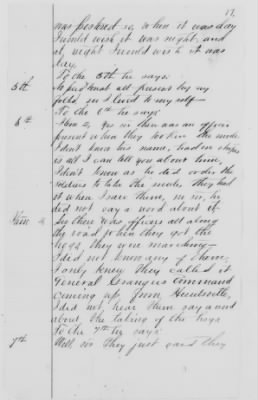 17.
was pestered so, when it was day
I would wish it was night, and
at night I would wish it was
day.
To the 5th he says:
5th
No paid most all present by my
folks, in I lived to my self—
To the 6th he says:
6th
Item 2, Yes sir there was an officer
present when they took the mule
I don't know his name, had on stripes
is all I can tell you about him,
I don't know as he did order the
soldiers to take the mule. They had
it when I saw them, no sir, he
did not say a word about it.
Item 4
Sir there was officers all along
the road when they got the
hogs, they were marching—
I did not know any of them,
I only knew they called it
General Granger's Command
coming up from Huntsville,
I did not hear them say a word
about the taking of the hogs
To the 7th he says
7th
Well, sir they just said they